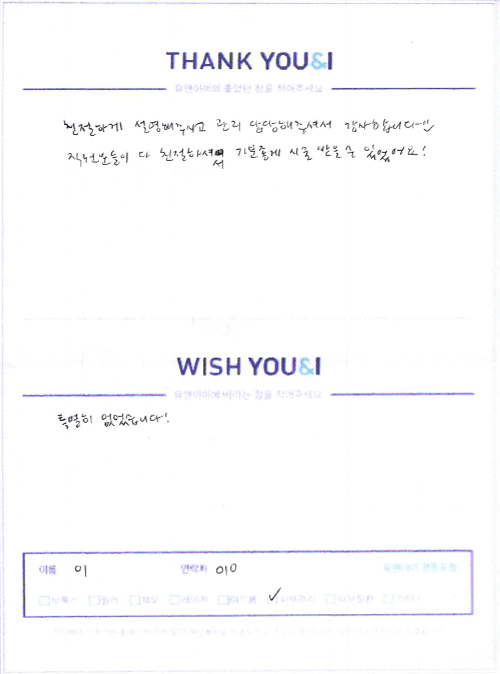 THANK YOU&I
유앤아이의 좋았던 점을 적어주세요
친절하게 설명해주시고 관리 담당해주셔서 감사합니다
직원분들이 다 친절하셔서 기분좋게 시술 받을 수 있었어요!
WISH YOU&I
유앤아이에 바라는 점을 적어주세요
특별히 없었습니다!
이름 이 연락처 010
보톡스 필러 제모 레이저 여드름 ✓ 피부관리 피부질환 기타